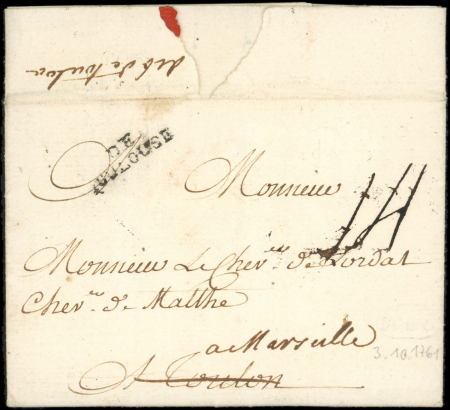 deb de toulon
DE
TOULOUSE
Monsieur
14
Monsieur Le Cher. de Lordat
Cher. de Malthe
a Marseille
A Toulon
3.10.1761